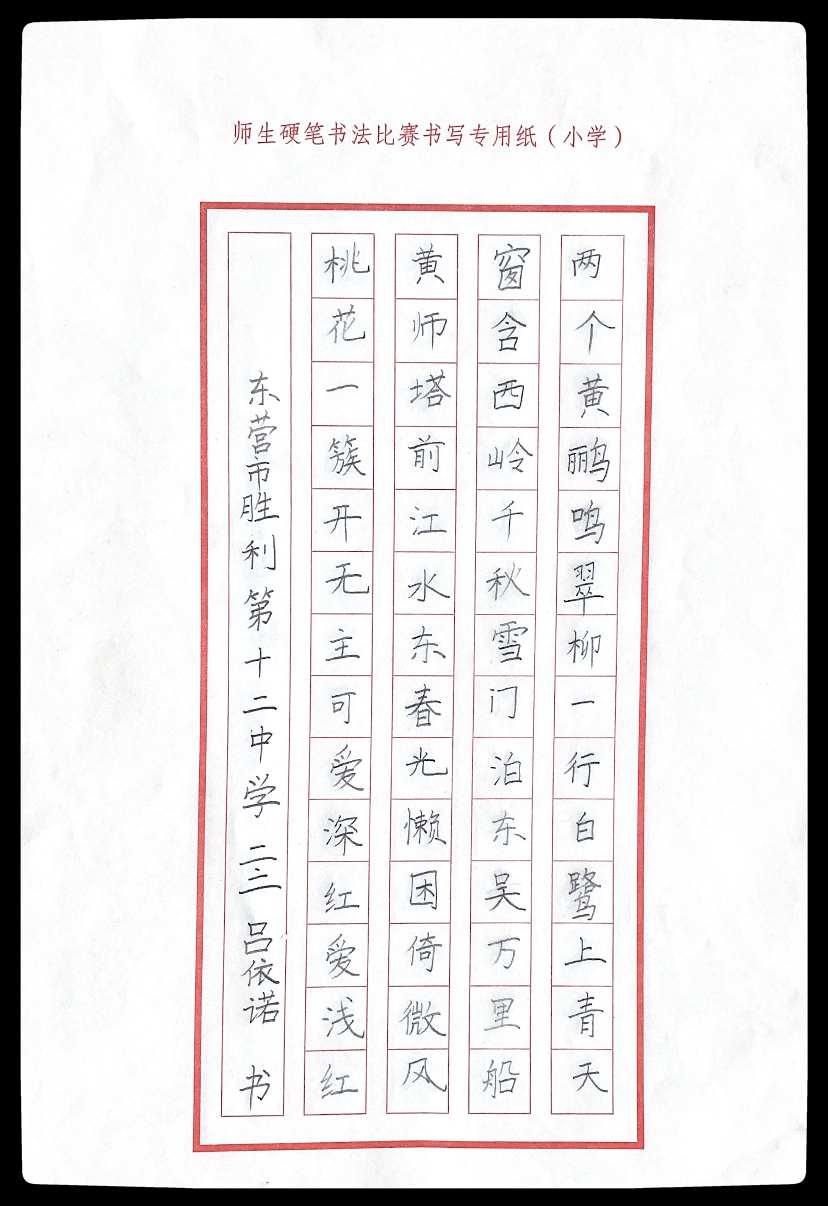 师生硬笔书法比赛书写专用纸（小学）
两个黄鹂鸣翠柳一行白鹭上青天
窗含西岭千秋雪门泊东吴万里船
黄师塔前江水东春光懒困倚微风
桃花一簇开无主可爱深红爱浅红
东营市胜利第十二中学 二三 吕依诺 书